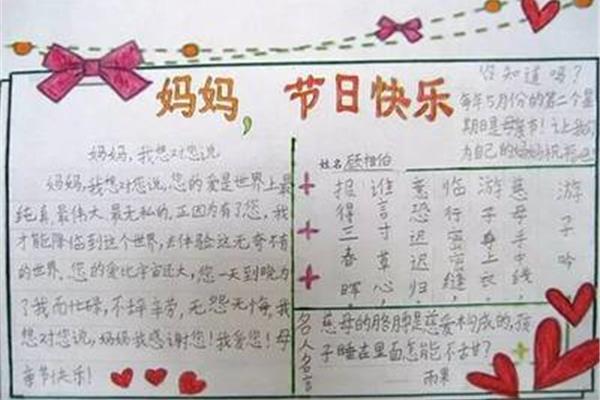 妈妈，节日快乐
你知道吗？
每年5月份的第二个星
期日是母亲节！让我们
为自己的妈妈祝福吧！
妈妈，我想对您说
妈妈，我想对您说，您的爱是世界上最
纯真、最伟大、最无私的，正因为有了您，我
才能降临到这个世界，去体验这无奇不有
的世界、您的爱比宇宙还大，您一天到晚为
了我而忙碌，不辞辛劳，无怨无悔，我
想对您说，妈妈我感谢您！我爱您！母
亲节快乐！
姓名 顾相伯
游子吟
慈母手中线，
游子身上衣，
临行密密缝，
意恐迟迟归，
谁言寸草心，
报得三春晖
名人名言
慈母的胳膊是慈爱构成的，孩
子睡在里面怎能不甜？
雨果